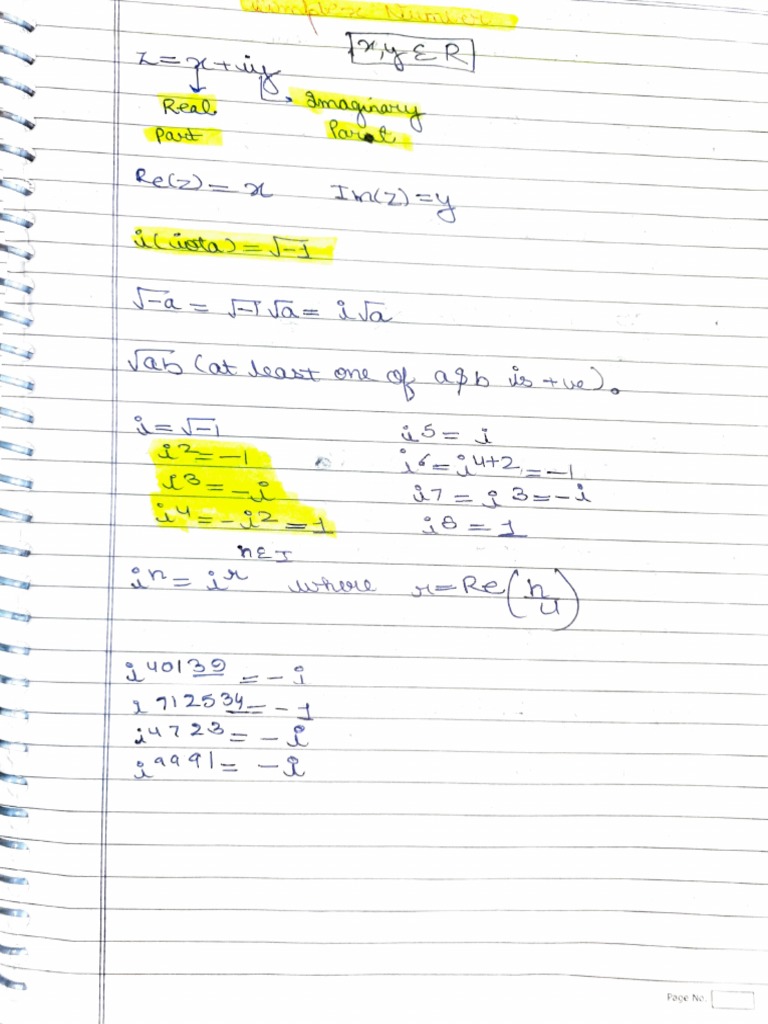 Complex Number
z = x + iy  [x, y ∈ R]
Real Part  Imaginary Part
Re(z) = x  Im(z) = y
i (iota) = √-1
√-a = √-1 √a = i√a
√ab (at least one of a & b is +ve).
i = √-1  i⁵ = i
i² = -1  i⁶ = i⁴⁺² = -1
i³ = -i  i⁷ = i³ = -i
i⁴ = -i² = 1  i⁸ = 1
n ∈ I
iⁿ = iʳ where r = Re(n/4)
i⁴⁰¹³⁹ = -i
i⁷¹²⁵³⁴ = -1
i⁴⁷²³ = -i
i⁹⁹⁹¹ = -i
Page No.